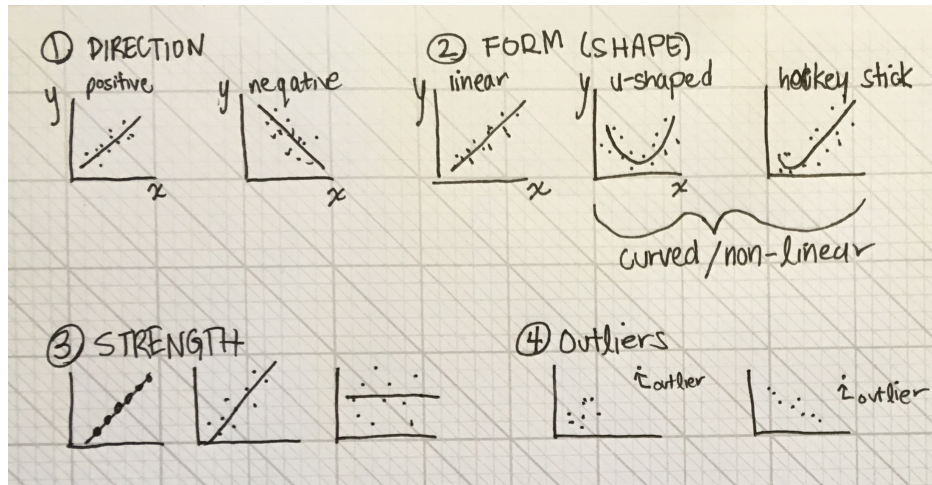 ① DIRECTION
positive
y
x
negative
y
x
② FORM (SHAPE)
linear
y
x
u-shaped
y
x
hockey stick
curved/non-linear
③ STRENGTH
④ Outliers
outlier
outlier